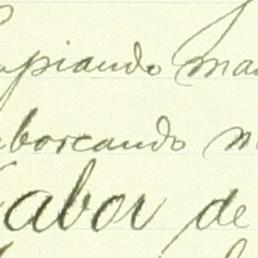 piando ma
boreando n
Labor de